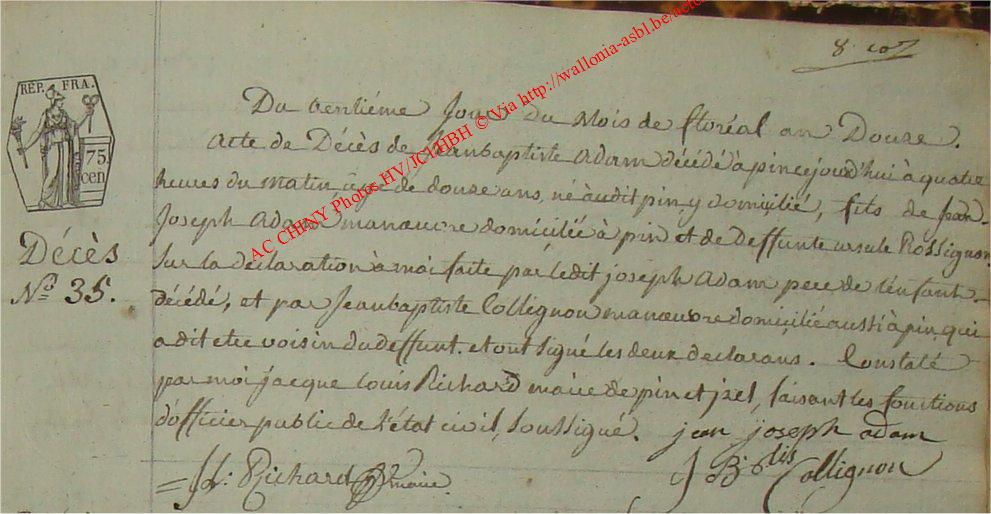 8. 
RÉP. FRA.
75.
cen
Décès
N.o 35.
AC CHINY Photos HV/JCl/HBH © Via http://wallonia-asbl.be/actes
Du trentiéme Jour du Mois de floréal an Douze.
Acte de Décès de Jeanbaptiste Adam décédé à pin cejourd'hui à quatre
heures du matin âgé de douze ans, né audit pin, y domicilié, fils de Jean
Joseph Adam manœuvre domicilié à pin et de deffunte ursule Rossignon
Sur la declaration à moi faite par ledit joseph Adam pere de l'enfant
décédé, et par Jeanbaptiste Collignon manœuvre domicilié aussi à pin, qui
a dit etre voisin du deffunt. et ont signé les deux declarans. Constaté
par moi jacque louis Richard maire de pin et jzel, faisant les fonctions
d'officier public de l'état civil, Soussigné. jean joseph adam
J L: Richard maire. J Btis Collignon